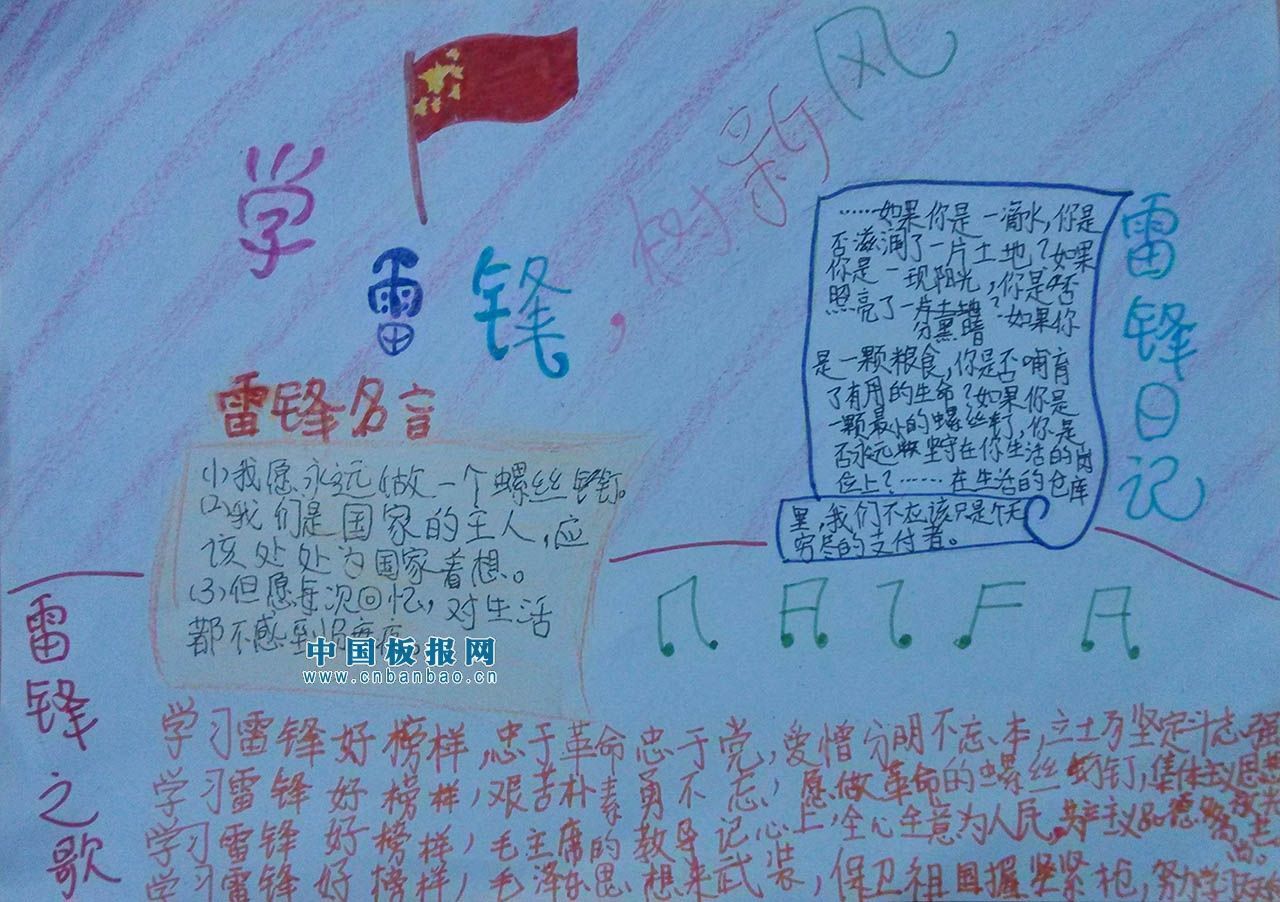 学雷锋，树新风
雷锋名言
(1)我愿永远做一个螺丝钉。
(2)我们是国家的主人，应
该处处为国家着想。
(3)但愿每次回忆，对生活
都不感到
中国板报网
www.cnbanbao.cn
雷锋日记
……如果你是一滴水，你是
否滋润了一片土地？如果
你是一现阳光，你是否
照亮了一
分黑暗？如果你
是一颗粮食，你是否哺育
了有用的生命？如果你是
一颗最小的螺丝钉，你是
否永远坚守在你生活的岗
位上？……在生活的仓库
里，我们不应该只是个无
穷尽的支付者。
雷锋之歌
学习雷锋好榜样，忠于革命忠于党，爱憎分明不忘本，立土万坚定斗志强
学习雷锋好榜样，艰苦朴素勇不忘，愿做革命的螺丝钉，集体主义思想放光芒
学习雷锋好榜样，毛主席的教导记心上，全心全意为人民，共产主义品德多高尚。
学习雷锋好榜样，毛泽东思想来武装，保卫祖国握紧枪，努力学习